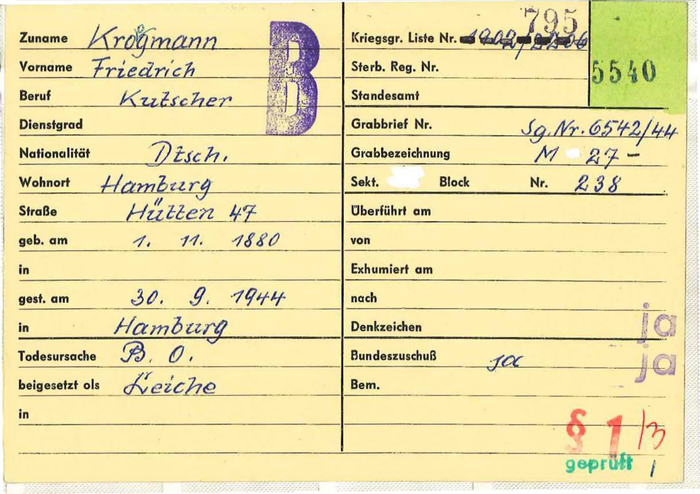 Zuname Krogmann
Vorname Friedrich
Beruf Kutscher
Dienstgrad
Nationalität Dtsch.
Wohnort Hamburg
Straße Hütten 47
geb. am 1. 11. 1880
in
gest. am 30. 9. 1944
in Hamburg
Todesursache B. O.
beigesetzt als Leiche
in
B
795
Kriegsgr. Liste Nr.
Sterb. Reg. Nr.
5540
Standesamt
Grabbrief Nr. Sg. Nr. 6542/44
Grabbezeichnung M 27 -
Sekt. Block Nr. 238
Überführt am
von
Exhumiert am
nach
Denkzeichen ja
Bundeszuschuß ja ja
Bem.
§ 1/3
geprüft